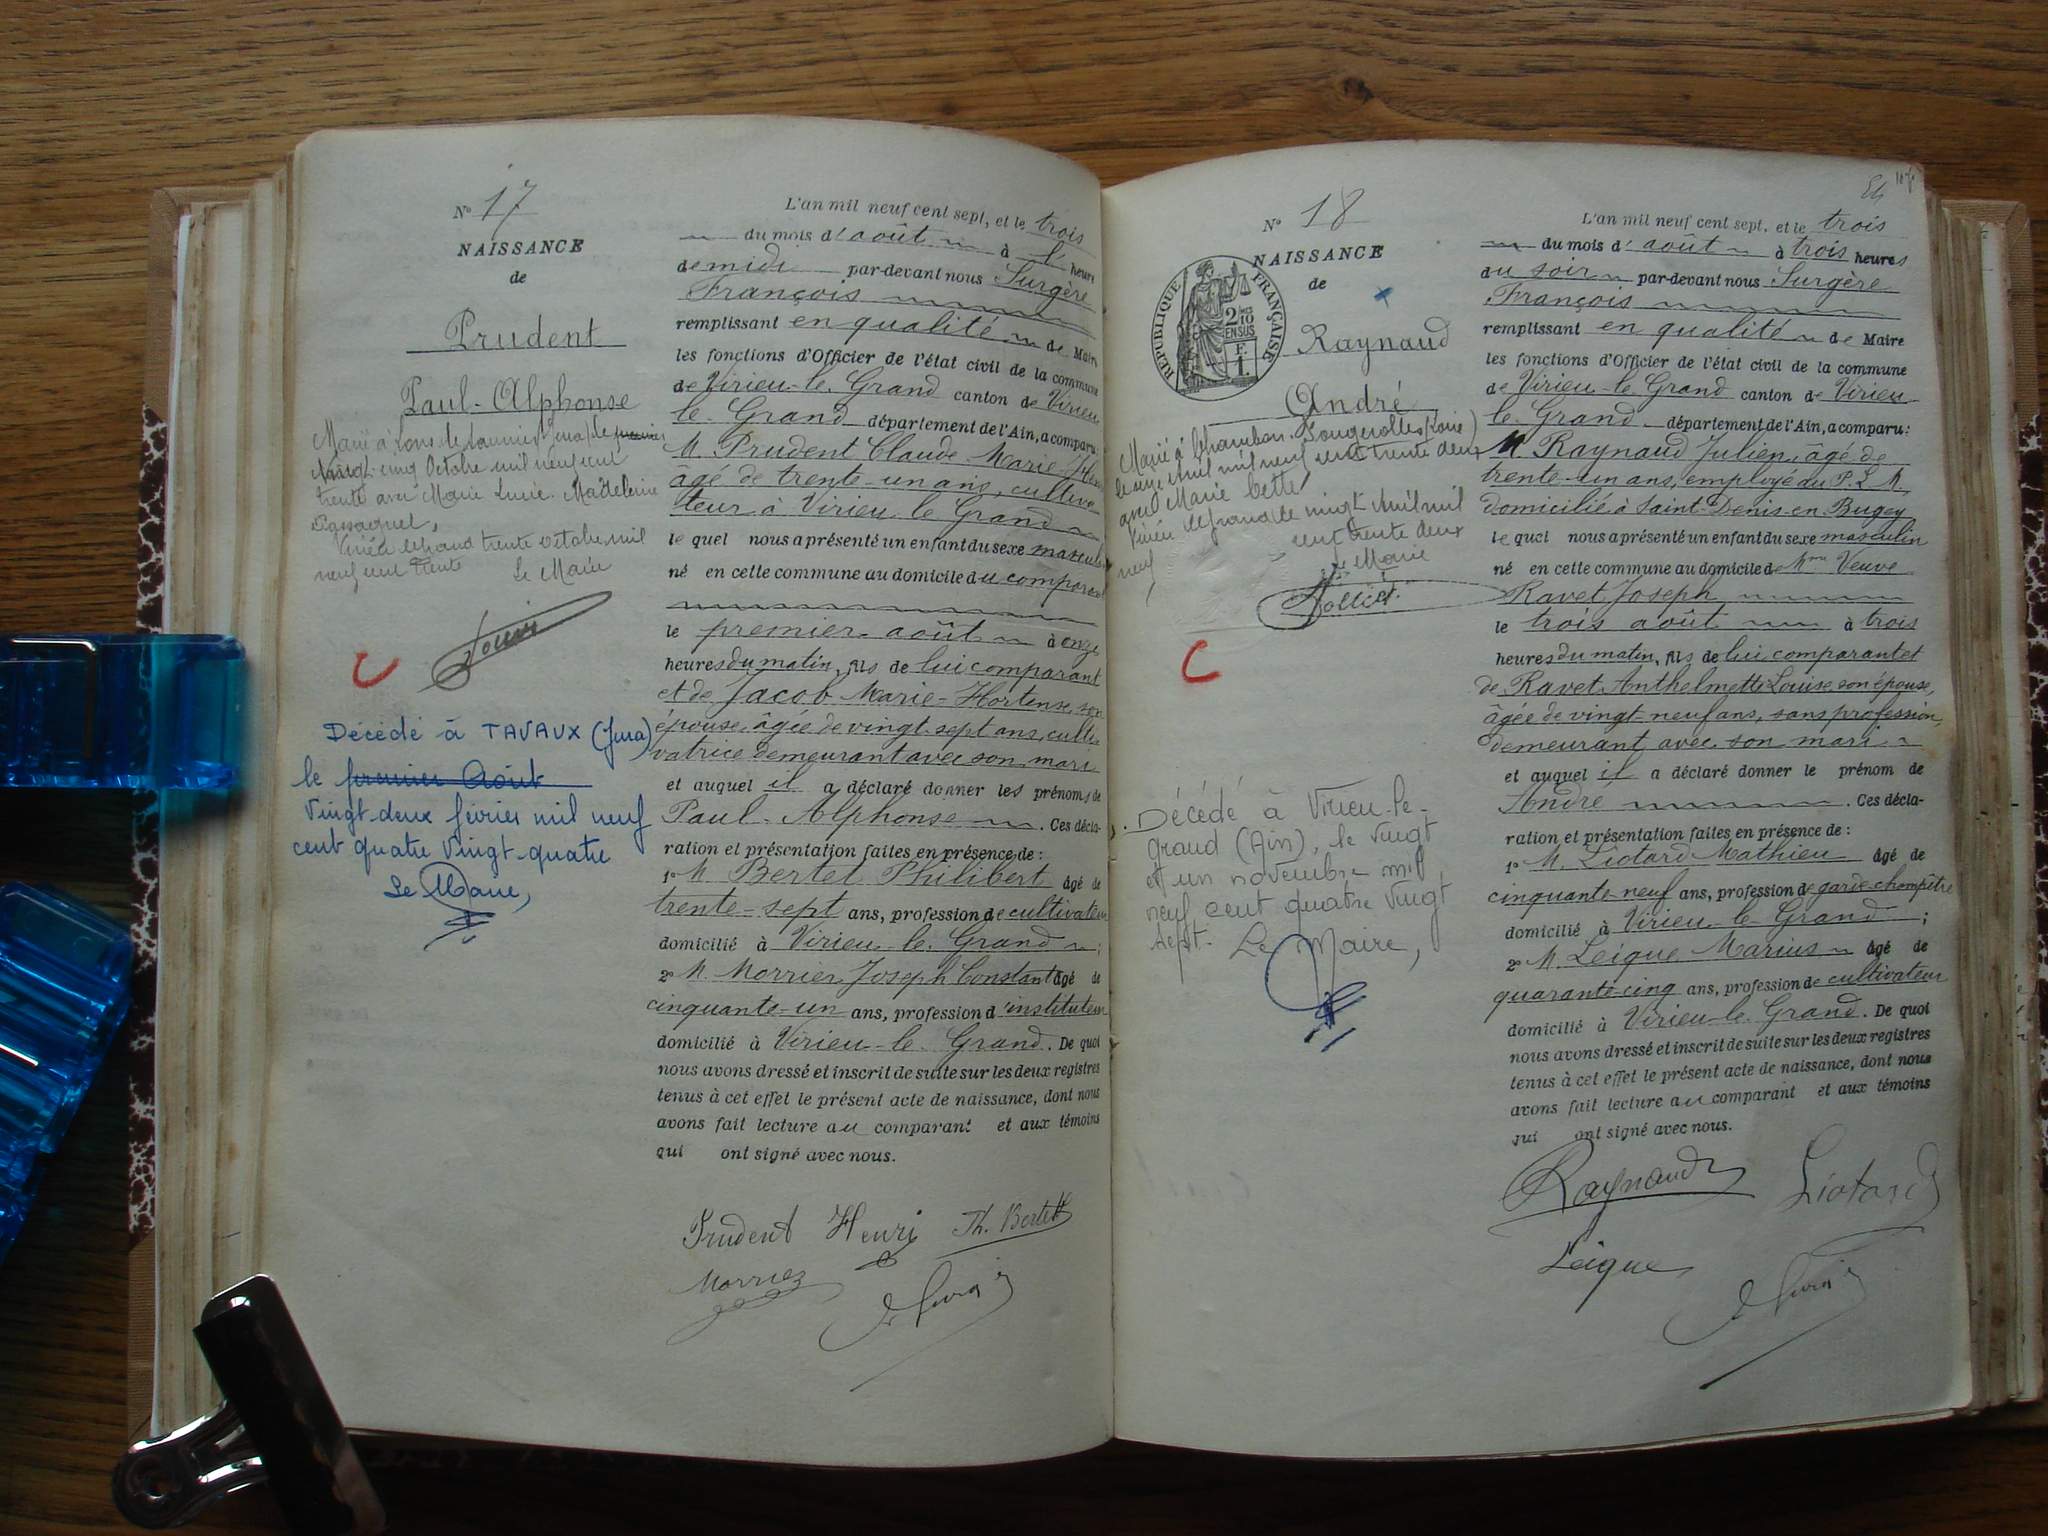 N° 17
NAISSANCE
de
Prudent
Paul-Alphonse
Marié à Lons-le-Saunier (Jura) le premier
Vingt cinq Octobre mil neuf cent
trente avec Marie Lucie Madeleine
Virieu le Grand trente octobre mil
neuf cent trente Le Maire
Décédé à TAVAUX (Jura)
le premier Août
Vingt-deux février mil neuf
cent quatre Vingt-quatre
Le Maire,
L'an mil neuf cent sept, et le trois
du mois d'août à 1 heure
de midi par-devant nous Surgère
François
remplissant en qualité de Maire
les fonctions d'Officier de l'état civil de la commune
de Virieu-le-Grand canton de Virieu
le-Grand département de l'Ain, a comparu:
M. Prudent Claude-Marie-
âgé de trente-un ans, cultiva-
teur à Virieu le Grand
lequel nous a présenté un enfant du sexe masculin
né en cette commune au domicile du comparant
le premier août à onze
heures du matin, fils de lui comparant
et de Jacob Marie-Hortense, son
épouse âgée de vingt sept ans, culti-
vatrice demeurant avec son mari
et auquel il a déclaré donner les prénoms de
Paul-Alphonse. Ces décla-
ration et présentation faites en présence de:
1° M. Bertet Philibert âgé de
trente-sept ans, profession de cultivateur
domicilié à Virieu-le-Grand;
2° M. Morrier Joseph Constant âgé de
cinquante-un ans, profession d'instituteur
domicilié à Virieu-le-Grand. De quoi
nous avons dressé et inscrit de suite sur les deux registres
tenus à cet effet le présent acte de naissance, dont nous
avons fait lecture au comparant et aux témoins
qui ont signé avec nous.
Prudent Henri Ph. Bertet
Morriez
54
N° 18
NAISSANCE
de
RÉPUBLIQUE FRANÇAISE
2 MES 10 EN SUS
F. 1.
Raynaud
André
Marié à Chambon-Feugerolles (Loire)
avril mil neuf cent trente deux
avec Marie Cette
Virieu le grand le vingt Avril mil
neuf cent trente deux
Le Maire
Décédé à Virieu-le-
Grand (Ain), le vingt
et un novembre mil
neuf cent quatre vingt
sept. Le Maire,
L'an mil neuf cent sept, et le trois
du mois d'août à trois heures
du soir par-devant nous Surgère
François
remplissant en qualité de Maire
les fonctions d'Officier de l'état civil de la commune
de Virieu-le-Grand canton de Virieu
le-Grand département de l'Ain, a comparu:
M. Raynaud Julien, âgé de
trente-un ans, employé du P.L.M.
domicilié à Saint-Denis-en-Bugey
lequel nous a présenté un enfant du sexe masculin
né en cette commune au domicile de Mme Veuve
Ravet Joseph
le trois août à trois
heures du matin, fils de lui comparant et
de Ravet Anthelmette Louise son épouse,
âgée de vingt-neuf ans, sans profession,
demeurant avec son mari
et auquel il a déclaré donner le prénom de
André. Ces décla-
ration et présentation faites en présence de:
1° M. Liotard Mathieu âgé de
cinquante-neuf ans, profession de garde-champêtre
domicilié à Virieu-le-Grand;
2° M. Leique Marius âgé de
quarante-cinq ans, profession de cultivateur
domicilié à Virieu-le-Grand. De quoi
nous avons dressé et inscrit de suite sur les deux registres
tenus à cet effet le présent acte de naissance, dont nous
avons fait lecture au comparant et aux témoins
qui ont signé avec nous.
Raynaud Liotard
Leique